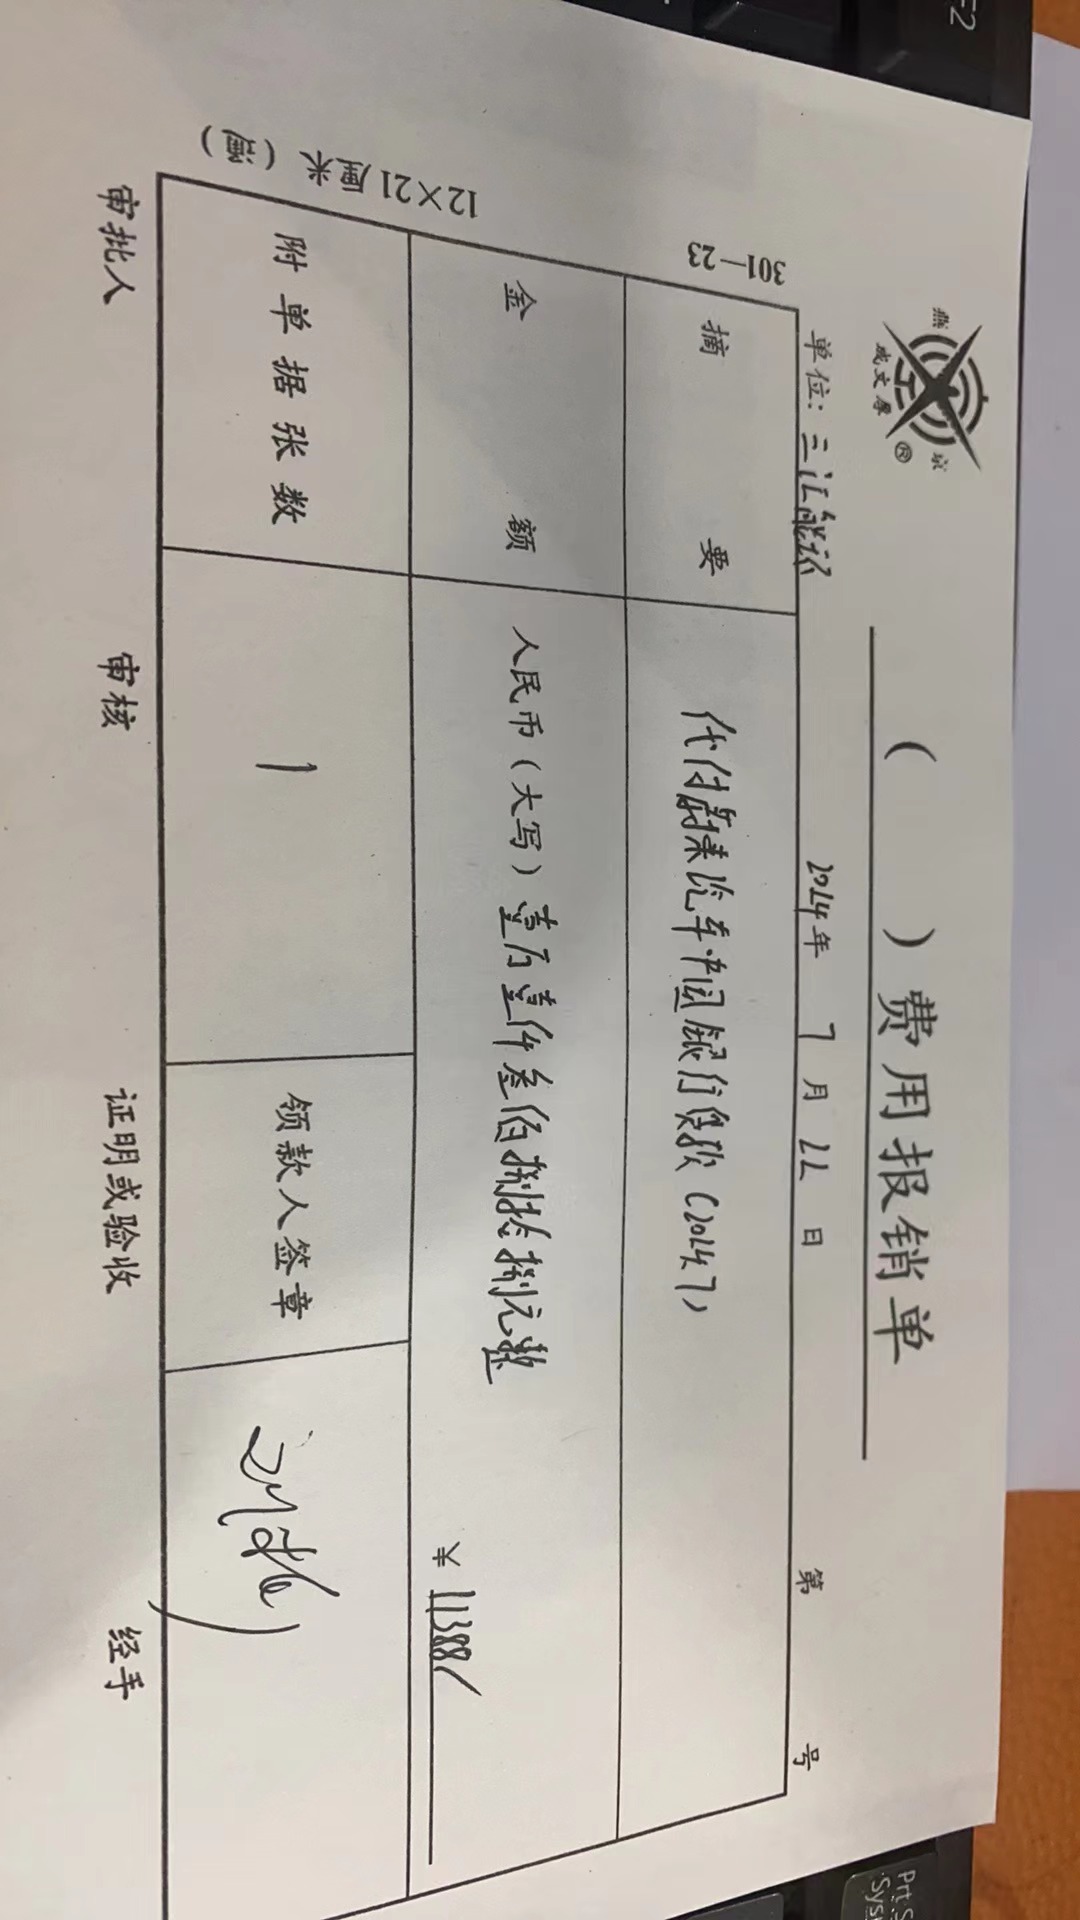 F2
燕京
成文厚
®
（　　）费用报销单
单位：三汇能环 2024年 7 月 22 日 第 号
301—23
摘要 代付蔚来汽车中国银行贷款（2024.7）
12×21厘米
金额 人民币（大写）壹万壹仟叁佰捌拾捌元整
¥ 11388/
附单据张数 1 领款人签章
审批人 审核 证明或验收 经手
Prt S
Sys